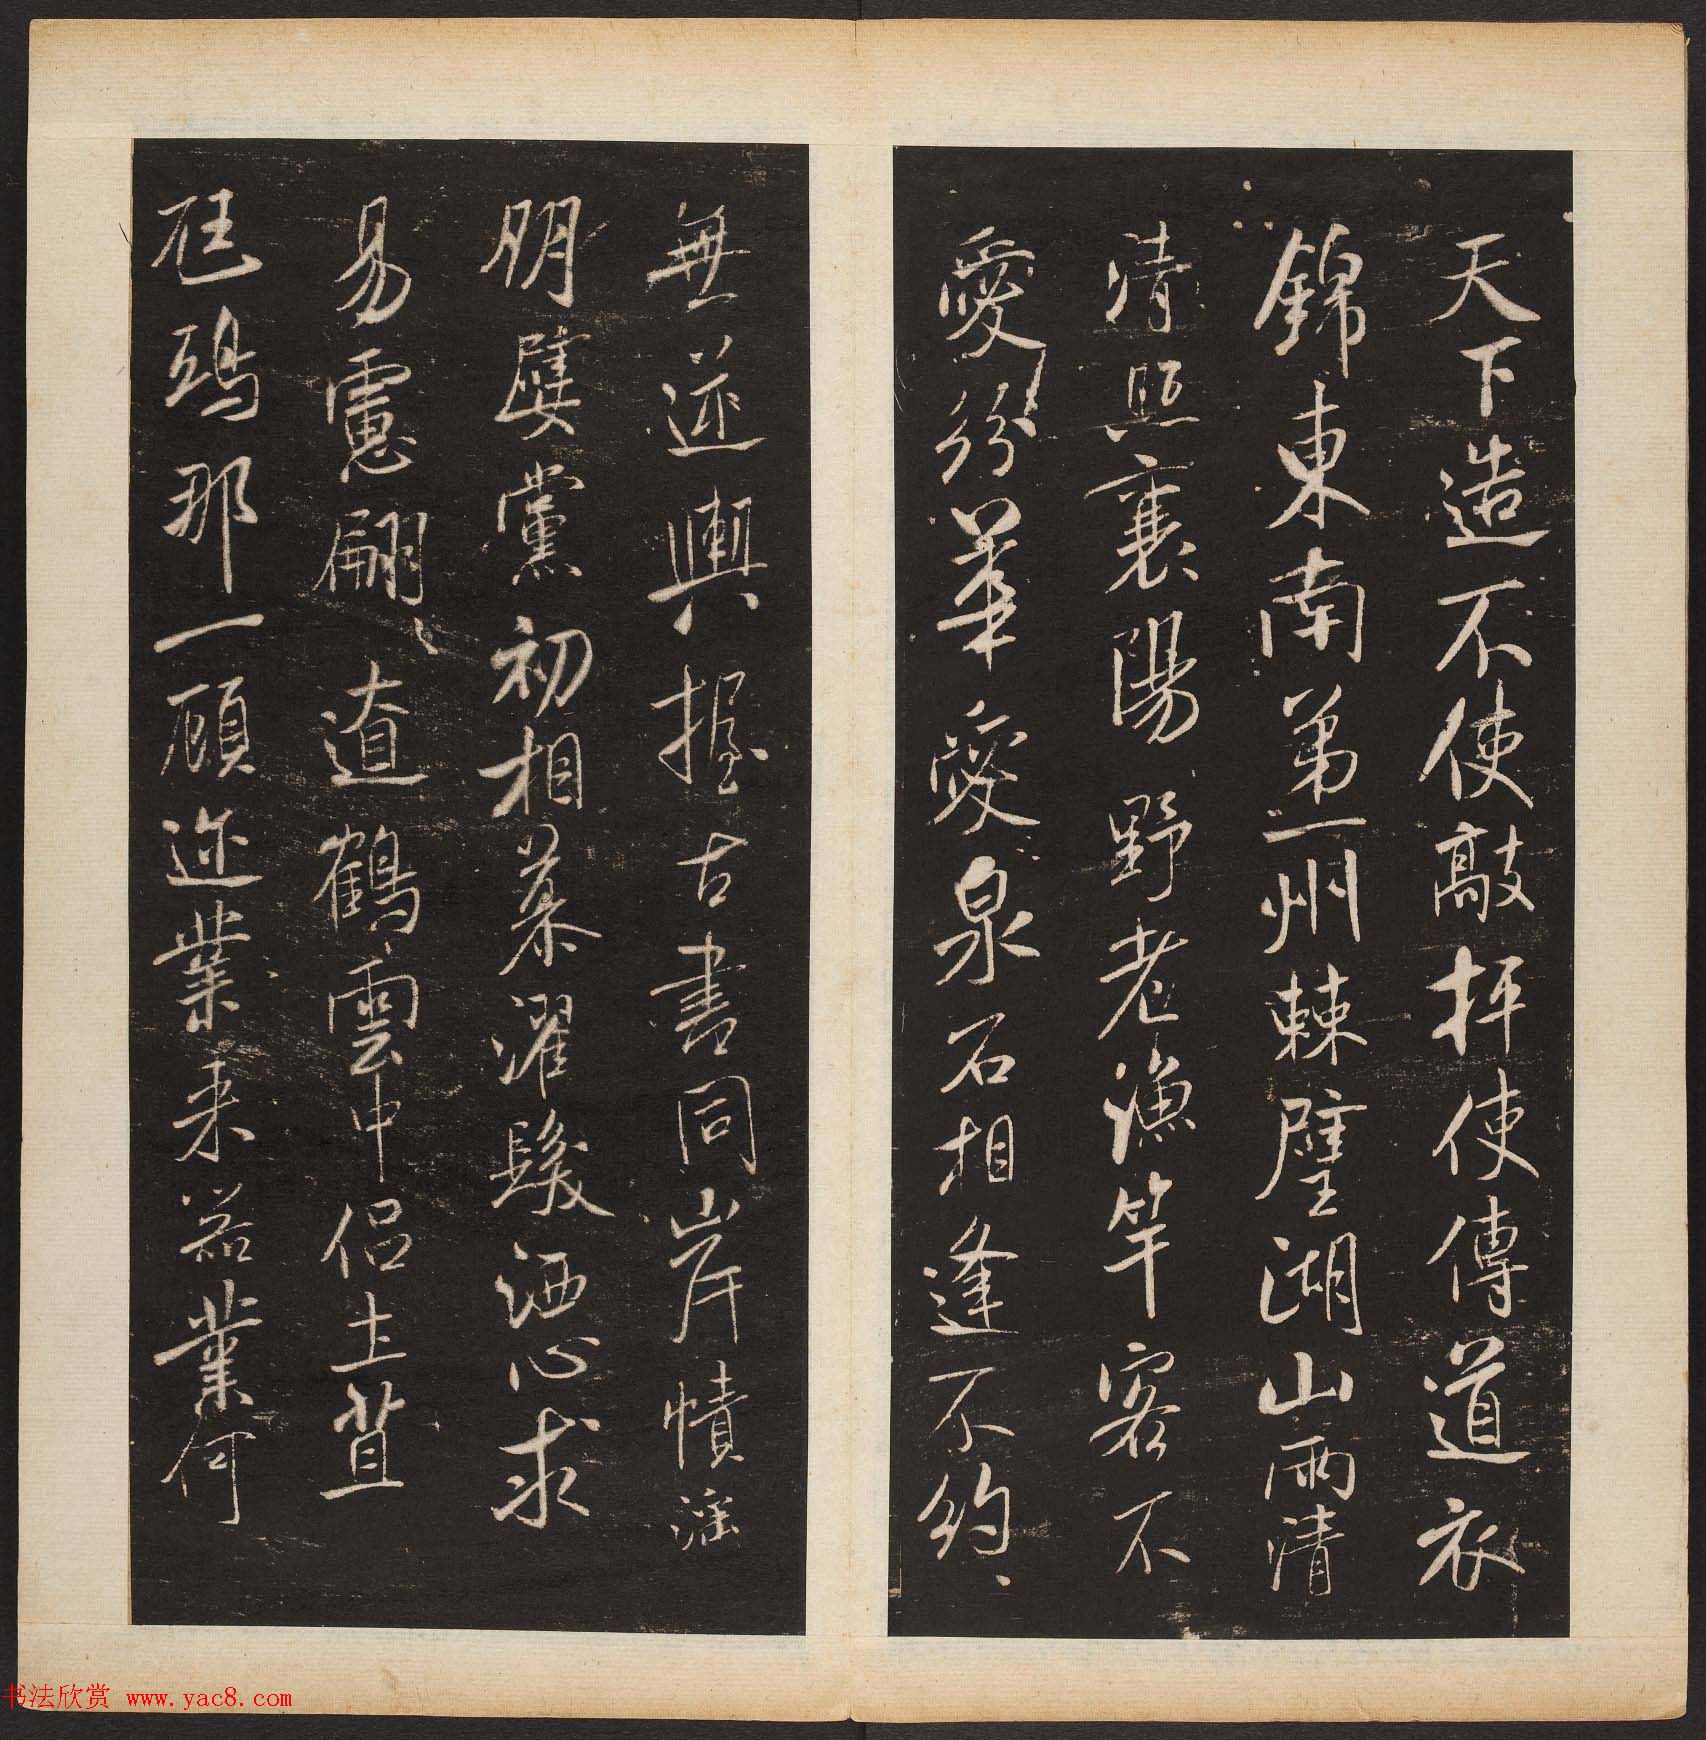 天下造不使敲抨使傳道衣
錦東南第一州棘璧湖山兩清
清照襄陽野老漁竿客不
愛紛華愛泉石相逢不約、
無逆輿握古書同岸幘淫
朋嬖黨初相慕濯髮洒心求
易慮翩、遼鶴雲中侶土苴
尫鴟那一顧迩業来器業何
书法欣赏 www.yac8.com